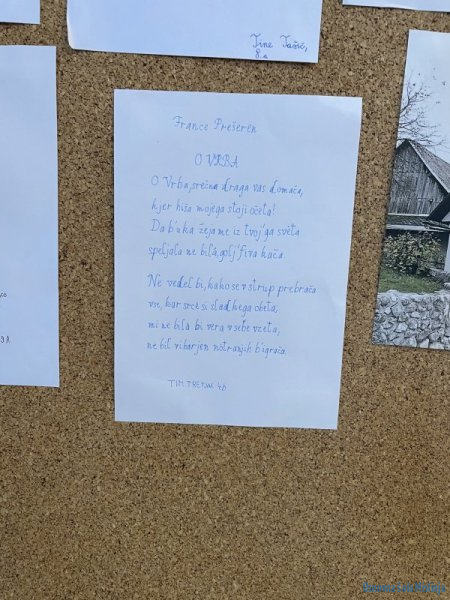 8.a
France Prešeren
O VRBA
O Vrba, srečna draga vas domača,
kjer hiša mojega stoji očeta!
Da b'uka žeja me iz tvoj'ga svéta
speljala ne bila, golj'fiva kača.
Ne vedel bi, kako se v strup prebrača
vse, kar srcé si sladkega obeta,
mi ne bila bi vera v sebe vzeta,
ne bil viharjev nótranjih b'igrača.
TIM 4.b